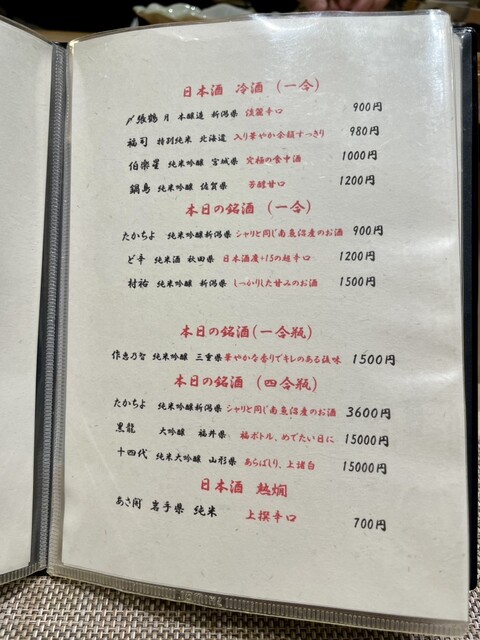 日本酒 冷酒 (一合)
〆張鶴 月 本醸造 新潟県 淡麗辛口 900円
福司 特別純米 北海道 入り華やか余韻すっきり 980円
伯楽星 純米吟醸 宮城県 究極の食中酒 1000円
鍋島 純米吟醸 佐賀県 芳醇甘口 1200円
本日の銘酒 (一合)
たかちよ 純米吟醸新潟県 シャリと同じ南魚沼産のお酒 900円
ど辛 純米酒 秋田県 日本酒度+15の超辛口 1200円
村祐 純米吟醸 新潟県 しっかりした甘みのお酒 1500円
本日の銘酒(一合瓶)
作恵乃智 純米吟醸 三重県華やかな香りでキレのある旨味 1500円
本日の銘酒 (四合瓶)
たかちよ 純米吟醸新潟県 シャリと同じ南魚沼産のお酒 3600円
黒龍 大吟醸 福井県 福ボトル、めでたい日に 15000円
十四代 純米大吟醸 山形県 あらばしり、上諸白 15000円
日本酒 熱燗
あさ開 岩手県 純米 上撰辛口 700円